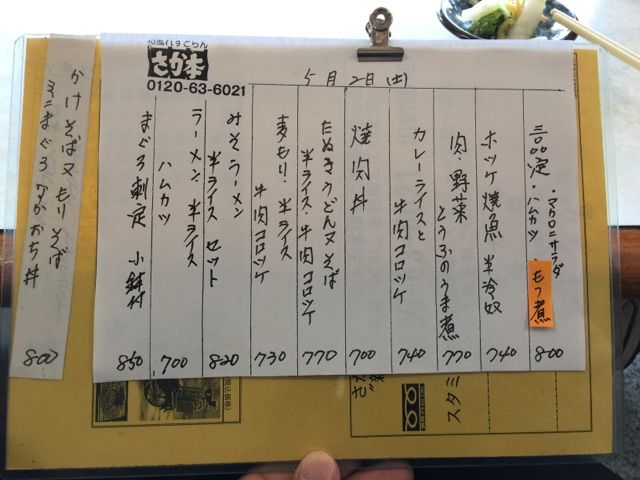 和風れすとらん
さか本
0120-63-6021
5月2日(土)
三品定・マカロニサラダ
・ハムカツ
もつ煮
800
ホッケ焼魚 半冷奴
740
肉・野菜
とうふのうま煮
770
カレーライスと
牛肉コロッケ
740
焼肉丼
700
たぬきうどん又そば
半ライス・牛肉コロッケ
770
麦もり・半ライス
牛肉コロッケ
730
みそラーメン
半ライスセット
820
ラーメン・半ライス
ハムカツ
700
まぐろ刺定 小鉢付
850
かけそば又もりそば
ミニまぐろ中おち丼
800
スタミ